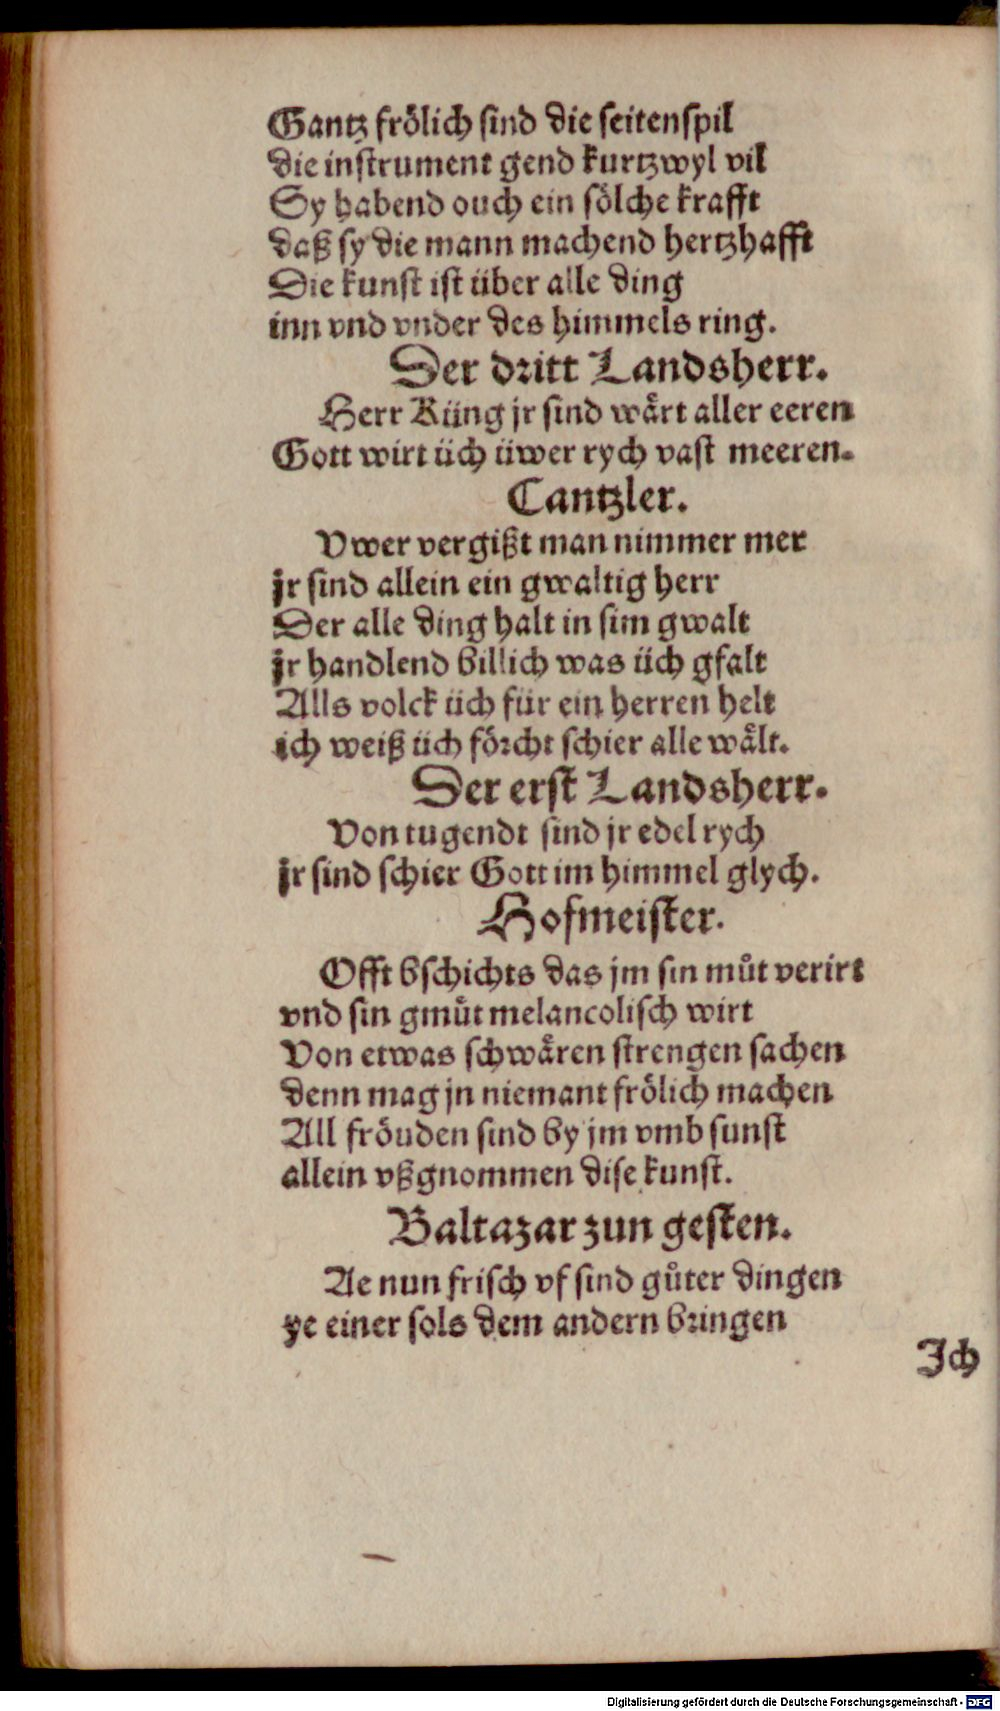 Gantz frölich sind die seitenspil
die instrument gend kurtzwyl vil
Sy habend ouch ein sölche krafft
daß sy die mann machend hertzhafft
Die kunst ist über alle ding
inn vnd vnder des himmels ring.
Der dritt Landsherr.
Herr Küng jr sind wärt aller eeren
Gott wirt üch üwer rych vast meeren.
Cantzler.
Vwer vergißt man nimmer mer
jr sind allein ein gwaltig herr
Der alle ding halt in sim gwalt
jr handlend billich was üch gfalt
Alls volck üch für ein herren helt
ich weiß üch förcht schier alle wält.
Der erst Landsherr.
Von tugendt sind jr edel rych
jr sind schier Gott im himmel glych.
Hofmeister.
Offt bschichts das jm sin můt verirt
vnd sin gmůt melancolisch wirt
Von etwas schwären strengen sachen
denn mag jn niemant frölich machen
All fröuden sind by jm vmb sunst
allein vßgnommen dise kunst.
Baltazar zun gesten.
Ae nun frisch vf sind gůter dingen
ye einer sols dem andern bringen
Ich
Digitalisierung gefördert durch die Deutsche Forschungsgemeinschaft - DFG